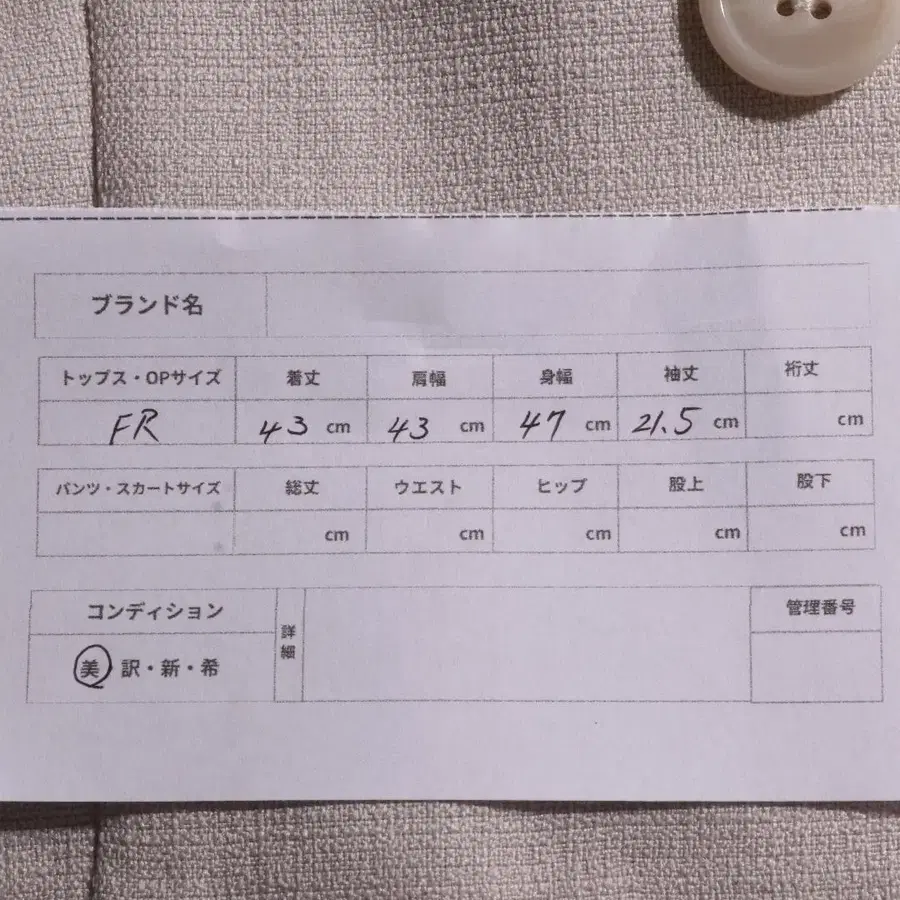 ブランド名
トップス・OPサイズ 着丈 肩幅 身幅 袖丈 裄丈
FR 43 cm 43 cm 47 cm 21.5 cm cm
パンツ・スカートサイズ 総丈 ウエスト ヒップ 股上 股下
cm cm cm cm cm
コンディション 詳細 管理番号
美 訳・新・希